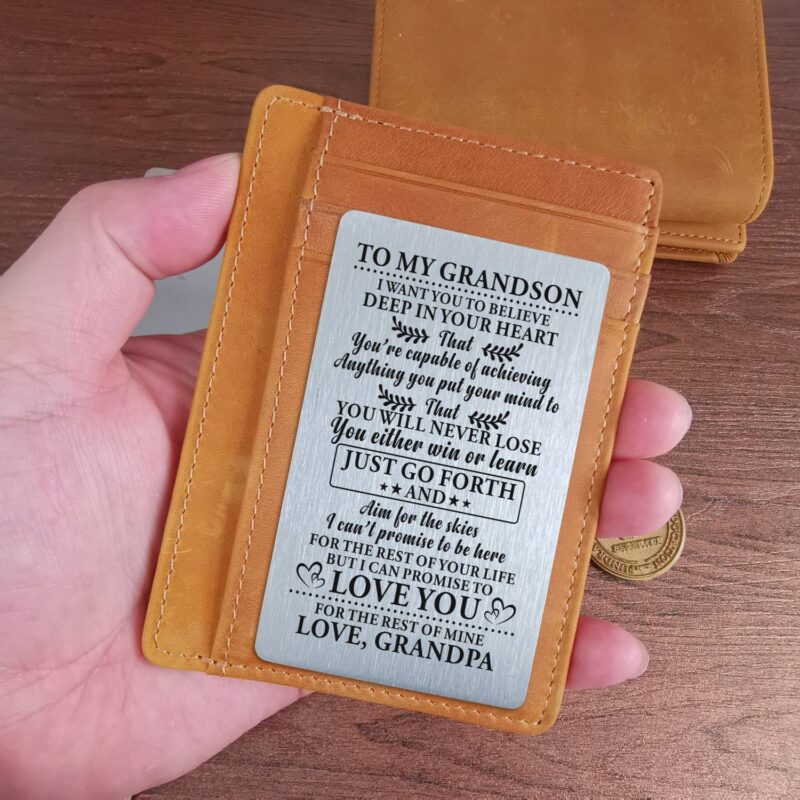 TO MY GRANDSON
I WANT YOU TO BELIEVE
DEEP IN YOUR HEART
That
You're capable of achieving
Anything you put your mind to
That
YOU WILL NEVER LOSE
You either win or learn
JUST GO FORTH
AND
Aim for the skies
I can't promise to be here
FOR THE REST OF YOUR LIFE
BUT I CAN PROMISE TO
LOVE YOU
FOR THE REST OF MINE
LOVE, GRANDPA